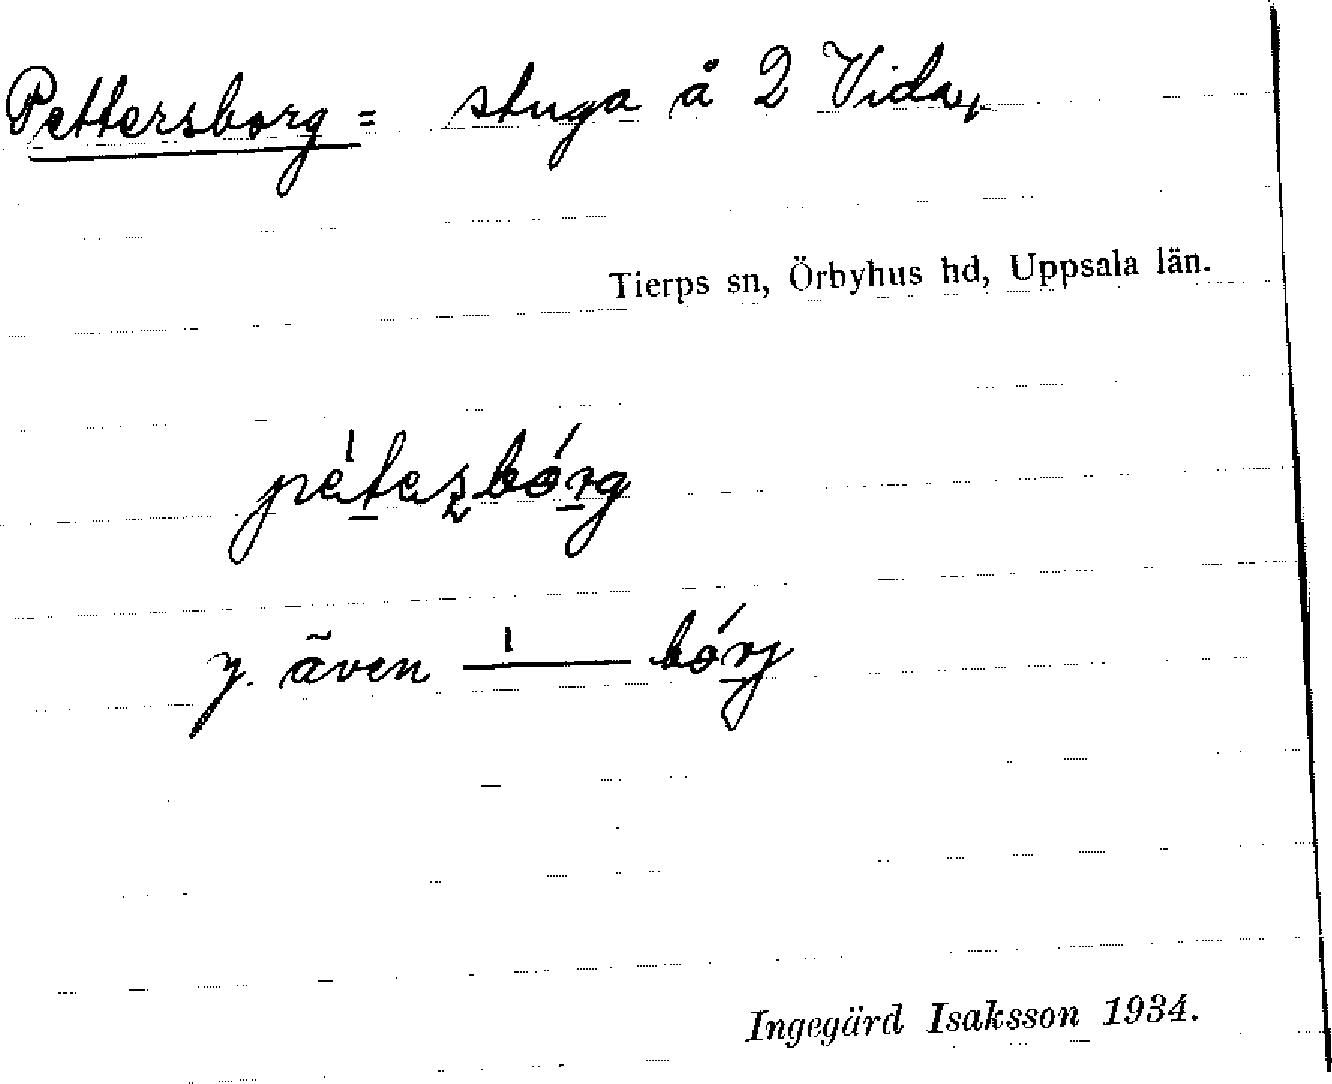 Pettersborg = stuga å 2 Vida
Tierps sn, Örbyhus hd, Uppsala län.
y. även — bórj
Ingegärd Isaksson 1934.